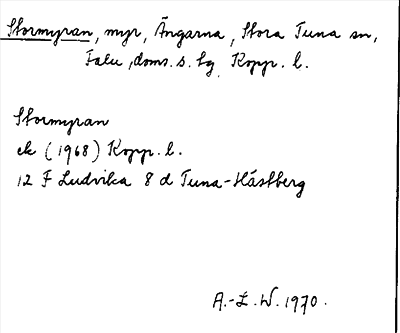 Stormyran, myr, Ängarna, Stora Tuna sn,
Falu doms. s. tg, Kopp. l.
Stormyran
ek (1968) Kopp. l.
12 F Ludvika 8 d Tuna-Hästberg
A.-L. W. 1970.